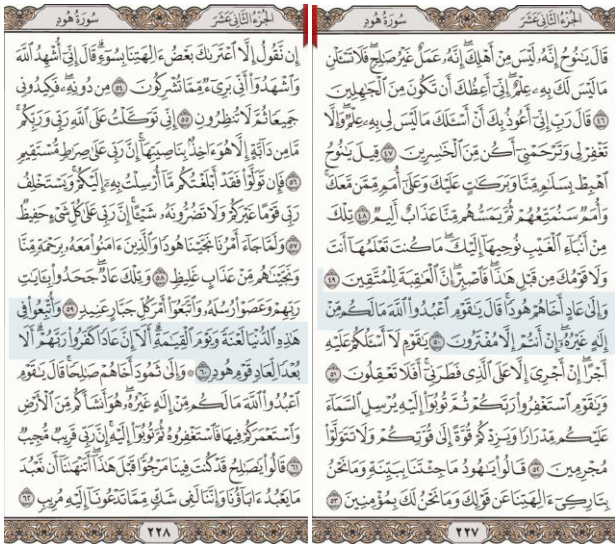 الجُزْءُ الثَّانِي عَشَرَ سُورَةُ هُودٍ
قَالَ يَٰنُوحُ إِنَّهُۥ لَيْسَ مِنْ أَهْلِكَۖ إِنَّهُۥ عَمَلٌ غَيْرُ صَٰلِحٖۖ فَلَا تَسْـَٔلْنِ
مَا لَيْسَ لَكَ بِهِۦ عِلْمٌۖ إِنِّيٓ أَعِظُكَ أَن تَكُونَ مِنَ ٱلْجَٰهِلِينَ
٤٦ قَالَ رَبِّ إِنِّيٓ أَعُوذُ بِكَ أَنْ أَسْـَٔلَكَ مَا لَيْسَ لِي بِهِۦ عِلْمٌۖ وَإِلَّا
تَغْفِرْ لِي وَتَرْحَمْنِيٓ أَكُن مِّنَ ٱلْخَٰسِرِينَ ٤٧ قِيلَ يَٰنُوحُ
ٱهْبِطْ بِسَلَٰمٖ مِّنَّا وَبَرَكَٰتٍ عَلَيْكَ وَعَلَىٰٓ أُمَمٖ مِّمَّن مَّعَكَۚ
وَأُمَمٌ سَنُمَتِّعُهُمْ ثُمَّ يَمَسُّهُم مِّنَّا عَذَابٌ أَلِيمٌ ٤٨ تِلْكَ
مِنْ أَنۢبَآءِ ٱلْغَيْبِ نُوحِيهَآ إِلَيْكَۖ مَا كُنتَ تَعْلَمُهَآ أَنتَ
وَلَا قَوْمُكَ مِن قَبْلِ هَٰذَاۖ فَٱصْبِرْۖ إِنَّ ٱلْعَٰقِبَةَ لِلْمُتَّقِينَ ٤٩
وَإِلَىٰ عَادٍ أَخَاهُمْ هُودٗاۚ قَالَ يَٰقَوْمِ ٱعْبُدُواْ ٱللَّهَ مَا لَكُم مِّنْ
إِلَٰهٍ غَيْرُهُۥٓۖ إِنْ أَنتُمْ إِلَّا مُفْتَرُونَ ٥٠ يَٰقَوْمِ لَآ أَسْـَٔلُكُمْ عَلَيْهِ
أَجْرًاۖ إِنْ أَجْرِيَ إِلَّا عَلَى ٱلَّذِي فَطَرَنِيٓۚ أَفَلَا تَعْقِلُونَ ٥١
وَيَٰقَوْمِ ٱسْتَغْفِرُواْ رَبَّكُمْ ثُمَّ تُوبُوٓاْ إِلَيْهِ يُرْسِلِ ٱلسَّمَآءَ
عَلَيْكُم مِّدْرَارٗا وَيَزِدْكُمْ قُوَّةً إِلَىٰ قُوَّتِكُمْ وَلَا تَتَوَلَّوْاْ
مُجْرِمِينَ ٥٢ قَالُواْ يَٰهُودُ مَا جِئْتَنَا بِبَيِّنَةٖ وَمَا نَحْنُ
بِتَارِكِيٓ ءَالِهَتِنَا عَن قَوْلِكَ وَمَا نَحْنُ لَكَ بِمُؤْمِنِينَ ٥٣
٢٢٧
الجُزْءُ الثَّانِي عَشَرَ سُورَةُ هُودٍ
إِن نَّقُولُ إِلَّا ٱعْتَرَىٰكَ بَعْضُ ءَالِهَتِنَا بِسُوٓءٖۗ قَالَ إِنِّيٓ أُشْهِدُ ٱللَّهَ
وَٱشْهَدُوٓاْ أَنِّي بَرِيٓءٌ مِّمَّا تُشْرِكُونَ ٥٤ مِن دُونِهِۦۖ فَكِيدُونِي
جَمِيعًا ثُمَّ لَا تُنظِرُونِ ٥٥ إِنِّي تَوَكَّلْتُ عَلَى ٱللَّهِ رَبِّي وَرَبِّكُمۚ
مَّا مِن دَآبَّةٍ إِلَّا هُوَ ءَاخِذُۢ بِنَاصِيَتِهَآۚ إِنَّ رَبِّي عَلَىٰ صِرَٰطٖ مُّسْتَقِيمٖ
٥٦ فَإِن تَوَلَّوْاْ فَقَدْ أَبْلَغْتُكُم مَّآ أُرْسِلْتُ بِهِۦٓ إِلَيْكُمْۚ وَيَسْتَخْلِفُ
رَبِّي قَوْمًا غَيْرَكُمْ وَلَا تَضُرُّونَهُۥ شَيْـًٔاۚ إِنَّ رَبِّي عَلَىٰ كُلِّ شَيْءٍ حَفِيظٞ
٥٧ وَلَمَّا جَآءَ أَمْرُنَا نَجَّيْنَا هُودٗا وَٱلَّذِينَ ءَامَنُواْ مَعَهُۥ بِرَحْمَةٖ مِّنَّا
وَنَجَّيْنَٰهُم مِّنْ عَذَابٍ غَلِيظٖ ٥٨ وَتِلْكَ عَادٞۖ جَحَدُواْ بِـَٔايَٰتِ
رَبِّهِمْ وَعَصَوْاْ رُسُلَهُۥ وَٱتَّبَعُوٓاْ أَمْرَ كُلِّ جَبَّارٍ عَنِيدٖ ٥٩ وَأُتْبِعُواْ فِي
هَٰذِهِ ٱلدُّنْيَا لَعْنَةٗ وَيَوْمَ ٱلْقِيَٰمَةِۗ أَلَآ إِنَّ عَادٗا كَفَرُواْ رَبَّهُمْۗ أَلَا
بُعْدٗا لِّعَادٖ قَوْمِ هُودٖ ٦٠ ۞ وَإِلَىٰ ثَمُودَ أَخَاهُمْ صَٰلِحٗاۚ قَالَ يَٰقَوْمِ
ٱعْبُدُواْ ٱللَّهَ مَا لَكُم مِّنْ إِلَٰهٍ غَيْرُهُۥۖ هُوَ أَنشَأَكُم مِّنَ ٱلْأَرْضِ
وَٱسْتَعْمَرَكُمْ فِيهَا فَٱسْتَغْفِرُوهُ ثُمَّ تُوبُوٓاْ إِلَيْهِۚ إِنَّ رَبِّي قَرِيبٞ مُّجِيبٞ
٦١ قَالُواْ يَٰصَٰلِحُ قَدْ كُنتَ فِينَا مَرْجُوّٗا قَبْلَ هَٰذَآۖ أَتَنْهَىٰنَآ أَن نَّعْبُدَ
مَا يَعْبُدُ ءَابَآؤُنَا وَإِنَّنَا لَفِي شَكّٖ مِّمَّا تَدْعُونَآ إِلَيْهِ مُرِيبٖ ٦٢
٢٢٨